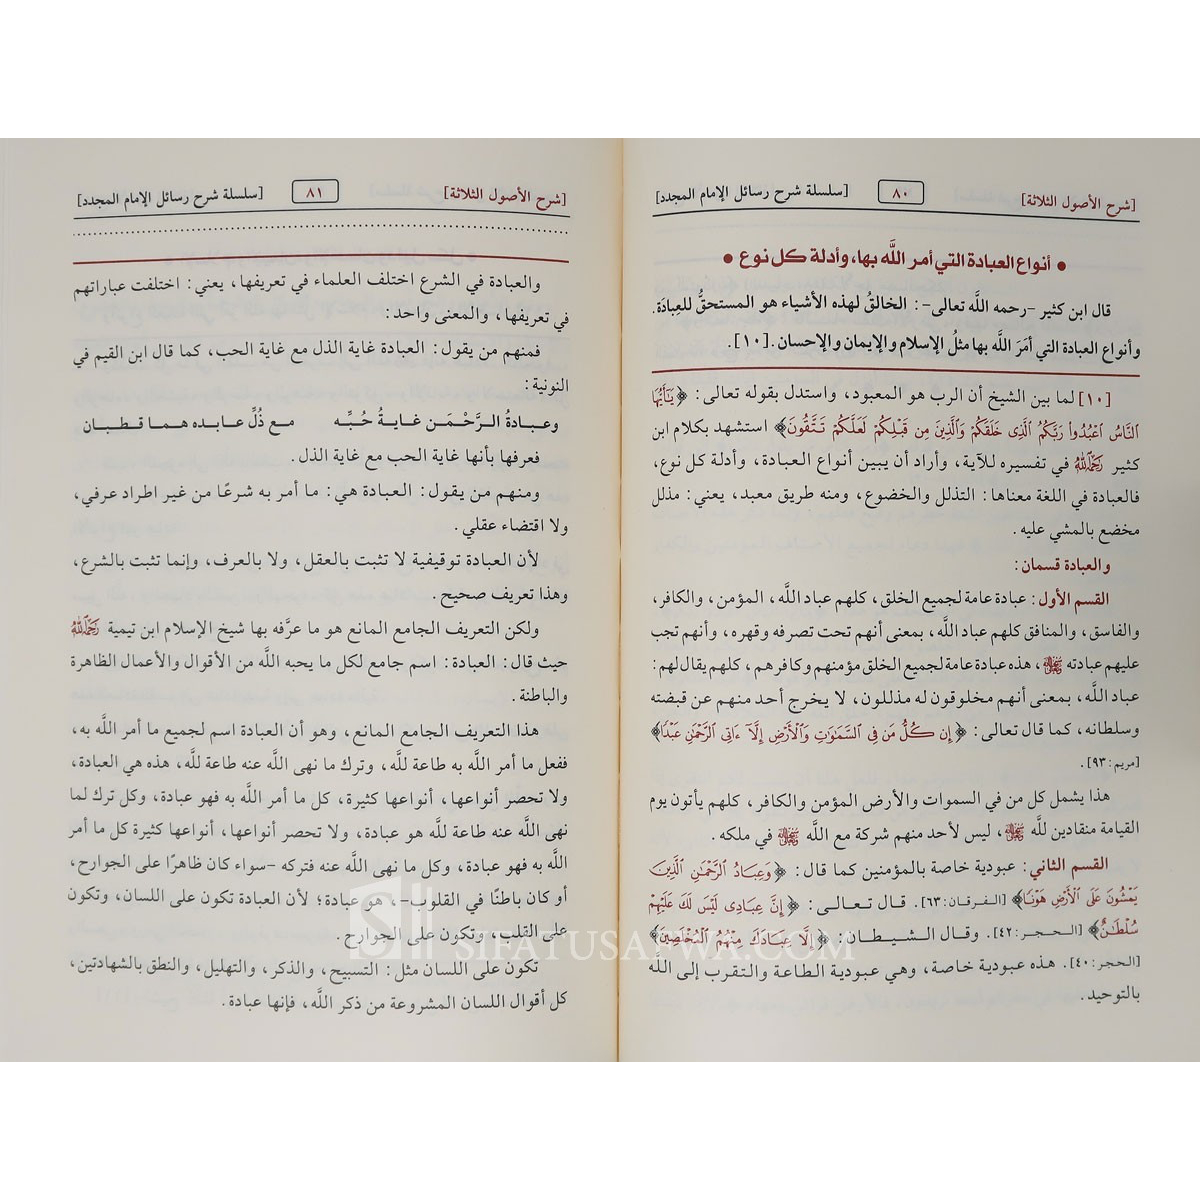 [شرح الأصول الثلاثة] ٨٠ [سلسلة شرح رسائل الإمام المجدد]
• أنواع العبادة التي أمر اللَّه بها، وأدلة كل نوع •
قال ابن كثير -رحمه اللَّه تعالى-: الخالقُ لهذه الأشياء هو المستحقُّ للعِبادَة.
وأنواع العبادة التي أمَرَ اللَّه بها مثلُ الإسلام والإيمان والإحسان. [١٠].
[١٠] لما بين الشيخ أن الرب هو المعبود، واستدل بقوله تعالى: ﴿يَـٰٓأَيُّهَا
ٱلنَّاسُ ٱعۡبُدُواْ رَبَّكُمُ ٱلَّذِى خَلَقَكُمۡ وَٱلَّذِينَ مِن قَبۡلِكُمۡ لَعَلَّكُمۡ تَتَّقُونَ﴾ استشهد بكلام ابن
كثير رحمه الله في تفسيره للآية، وأراد أن يبين أنواع العبادة، وأدلة كل نوع،
فالعبادة في اللغة معناها: التذلل والخضوع، ومنه طريق معبد، يعني: مذلل
مخضع بالمشي عليه.
والعبادة قسمان:
القسم الأول: عبادة عامة لجميع الخلق، كلهم عباد اللَّه، المؤمن، والكافر،
والفاسق، والمنافق كلهم عباد اللَّه، بمعنى أنهم تحت تصرفه وقهره، وأنهم تجب
عليهم عبادته ﷻ، هذه عبادة عامة لجميع الخلق مؤمنهم وكافرهم، كلهم يقال لهم:
عباد اللَّه، بمعنى أنهم مخلوقون له مذللون، لا يخرج أحد منهم عن قبضته
وسلطانه، كما قال تعالى: ﴿إِن كُلُّ مَن فِى ٱلسَّمَـٰوَٰتِ وَٱلۡأَرۡضِ إِلَّآ ءَاتِى ٱلرَّحۡمَـٰنِ عَبۡدًا﴾
[مريم: ٩٣].
هذا يشمل كل من في السموات والأرض المؤمن والكافر، كلهم يأتون يوم
القيامة منقادين للَّه ﷻ، ليس لأحد منهم شركة مع اللَّه ﷻ في ملكه.
القسم الثاني: عبودية خاصة بالمؤمنين كما قال: ﴿وَعِبَادُ ٱلرَّحۡمَـٰنِ ٱلَّذِينَ
يَمۡشُونَ عَلَى ٱلۡأَرۡضِ هَوۡنًا﴾ [الفرقان: ٦٣]. قال تعالى: ﴿إِنَّ عِبَادِى لَيۡسَ لَكَ عَلَيۡهِمۡ
سُلۡطَـٰنٌ﴾ [الحجر: ٤٢]. وقال الشيطان: ﴿إِلَّا عِبَادَكَ مِنۡهُمُ ٱلۡمُخۡلَصِينَ﴾
[الحجر: ٤٠]. هذه عبودية خاصة، وهي عبودية الطاعة والتقرب إلى اللَّه
بالتوحيد.
[شرح الأصول الثلاثة] ٨١ [سلسلة شرح رسائل الإمام المجدد]
والعبادة في الشرع اختلف العلماء في تعريفها، يعني: اختلفت عباراتهم
في تعريفها، والمعنى واحد:
فمنهم من يقول: العبادة غاية الذل مع غاية الحب، كما قال ابن القيم في
النونية:
وعبادةُ الرَّحْمَن غايةُ حُبِّه مع ذُلِّ عابده هما قطبان
فعرفها بأنها غاية الحب مع غاية الذل.
ومنهم من يقول: العبادة هي: ما أمر به شرعًا من غير اطراد عرفي،
ولا اقتضاء عقلي.
لأن العبادة توقيفية لا تثبت بالعقل، ولا بالعرف، وإنما تثبت بالشرع،
وهذا تعريف صحيح.
ولكن التعريف الجامع المانع هو ما عرَّفه بها شيخ الإسلام ابن تيمية رحمه الله
حيث قال: العبادة: اسم جامع لكل ما يحبه اللَّه من الأقوال والأعمال الظاهرة
والباطنة.
هذا التعريف الجامع المانع، وهو أن العبادة اسم لجميع ما أمر اللَّه به،
ففعل ما أمر اللَّه به طاعة للَّه، وترك ما نهى اللَّه عنه طاعة للَّه، هذه هي العبادة،
ولا تحصر أنواعها، أنواعها كثيرة، كل ما أمر اللَّه به فهو عبادة، وكل ترك لما
نهى اللَّه عنه طاعة للَّه هو عبادة، ولا تحصر أنواعها، أنواعها كثيرة كل ما أمر
اللَّه به فهو عبادة، وكل ما نهى اللَّه عنه فتركه -سواء كان ظاهرًا على الجوارح،
أو كان باطنًا في القلوب-، هو عبادة؛ لأن العبادة تكون على اللسان، وتكون
على القلب، وتكون على الجوارح.
تكون على اللسان مثل: التسبيح، والذكر، والتهليل، والنطق بالشهادتين،
كل أقوال اللسان المشروعة من ذكر اللَّه، فإنها عبادة.
SIFATUSAFWA.COM